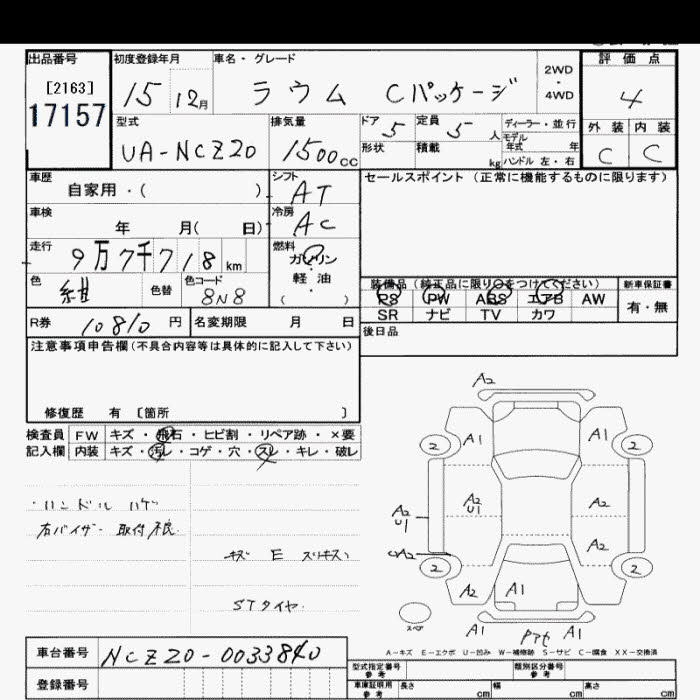 出品番号 初度登録年月 車名・グレード 2WD・4WD 評価点
[2163]
17157
15 12月 ラウム Cパッケージ 4
型式 排気量 ドア 定員 ディーラー・並行 外装 内装
UA-NCZ20 1500cc 5 5人 モデル年式 年 C C
形状 積載 kg ハンドル 左・右
車歴 シフト セールスポイント (正常に機能するものに限ります)
自家用・( ) AT
車検 冷房
年 月( 日) AC
走行 燃料
9万7千718km ガソリン・軽油
色 色替 色コード ( )
紺 8N8
装備品(純正品に限り○をつけてください) 新車保証書
PS PW ABS エアB AW 有・無
SR ナビ TV カワ
R券 10810円 名変期限 月 日
後日品
注意事項申告欄(不具合内容等は具体的に記入して下さい)
修復歴 有 〔箇所 〕
検査員 FW キズ・飛石・ヒビ割・リペア跡・×要
記入欄 内装 キズ・汚レ・コゲ・穴・スレ・キレ・破レ
・ハンドル ハゲ
右バイザー 取付不良
キズ E スリキズ
STタイヤ
A2
A1 A1
2 2
A2 U1 A2 U1 A2
A2 A2
2 2
A2 A1
スペア
A1 A1
A-キズ E-エクボ U-凹み W-補修跡 S-サビ C-腐食 XX-交換済
車台番号 NCZ20-0033840
登録番号
型式指定番号 参考 類別区分番号 参考
車庫証明用 参考 長さ cm 幅 cm 高さ cm